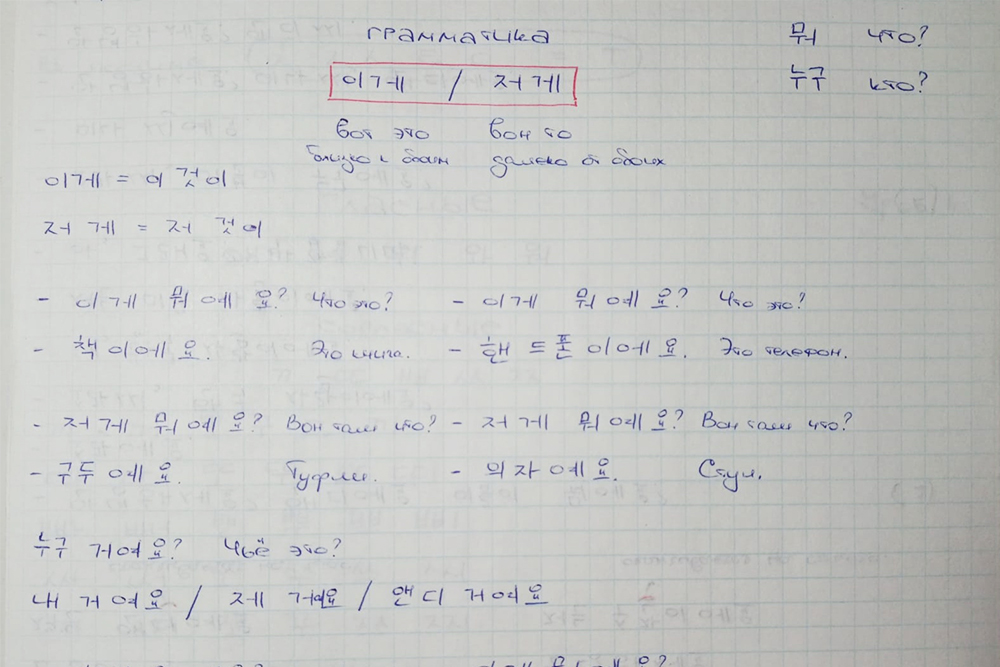 грамматика
뭐 что?
이게 / 저게
누구 кто?
вот это вон то
близко к обоим далеко от обоих
이게 = 이 것이
저게 = 저 것이
- 이게 뭐예요? Что это? - 이게 뭐예요? Что это?
- 책이에요. Это книга. - 핸드폰이에요. Это телефон.
- 저게 뭐예요? Вон там что? - 저게 뭐예요? Вон там что?
- 구두예요. Туфли. - 의자예요. Стул.
누구 거예요? Чьё это?
내 거예요 / 제 거예요 / 앤디 거예요